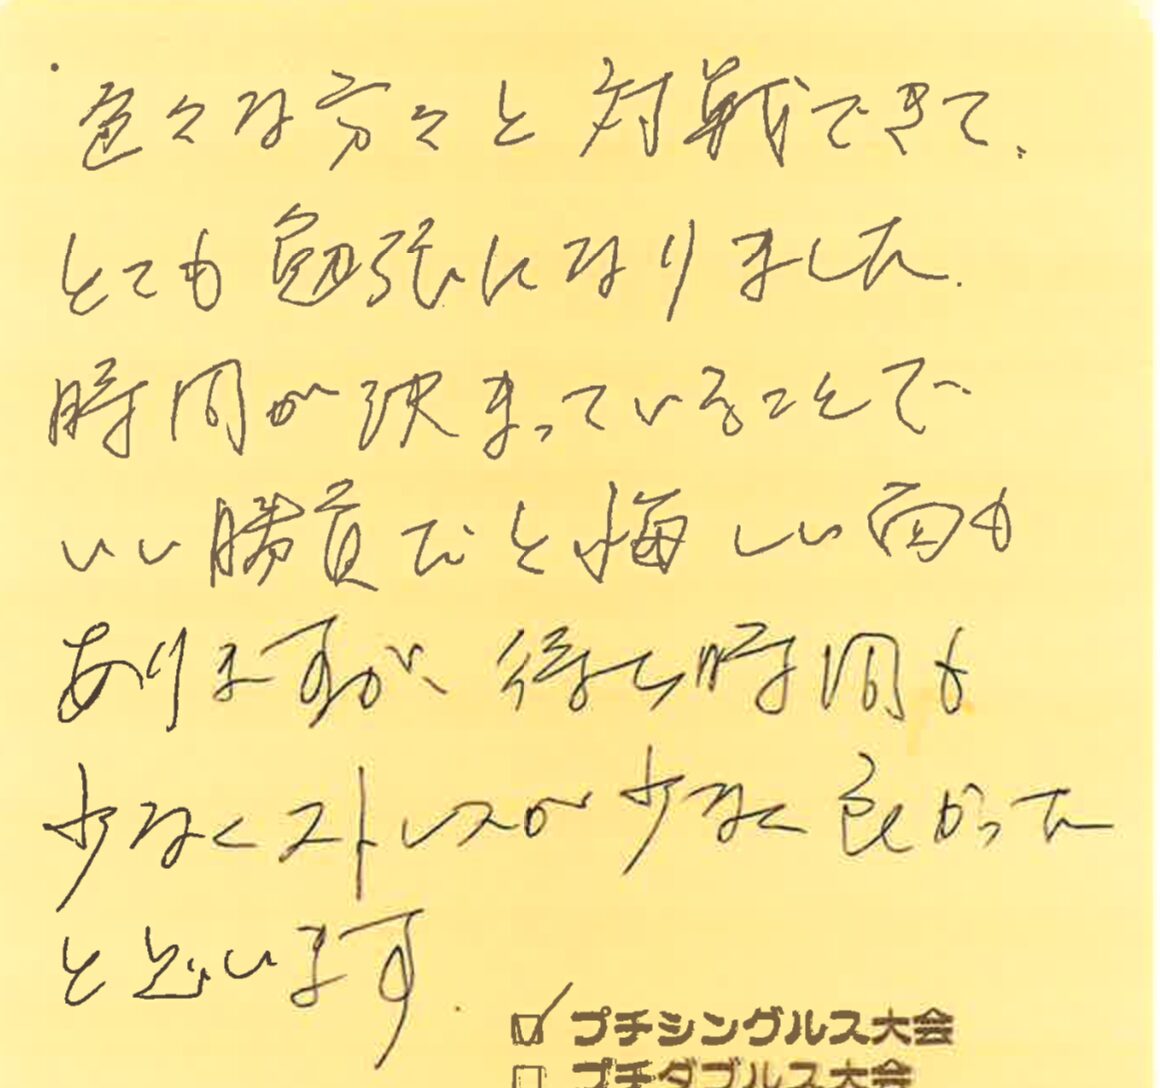 ・色々な方々と対戦できて、
とても勉強になりました。
時間が決まっていることで
いい勝負だと悔しい面も
ありますが、待ち時間も
少なくストレスが少なく良かった
と思います。
☑ プチシングルス大会
□ プチダブルス大会